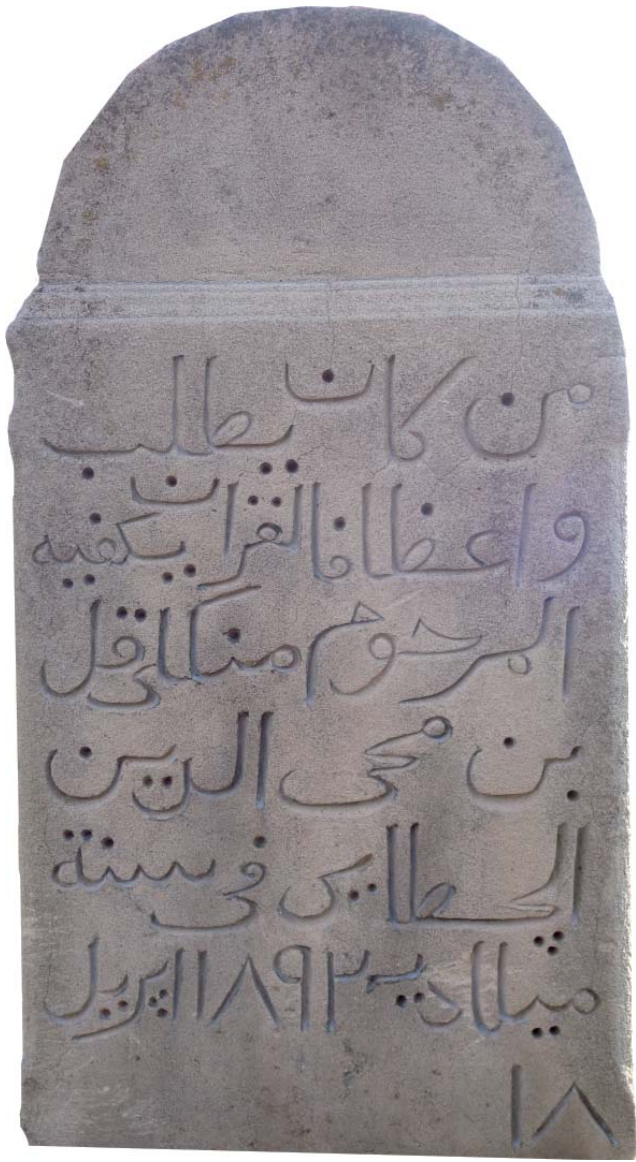 من كان يطالب
واعظا فالقران يكفيه
المرحوم منكلى قل
بن محى الدين
الحطايى فى سنة
ميلاديه ١٨٩٣ اپريل
١٨